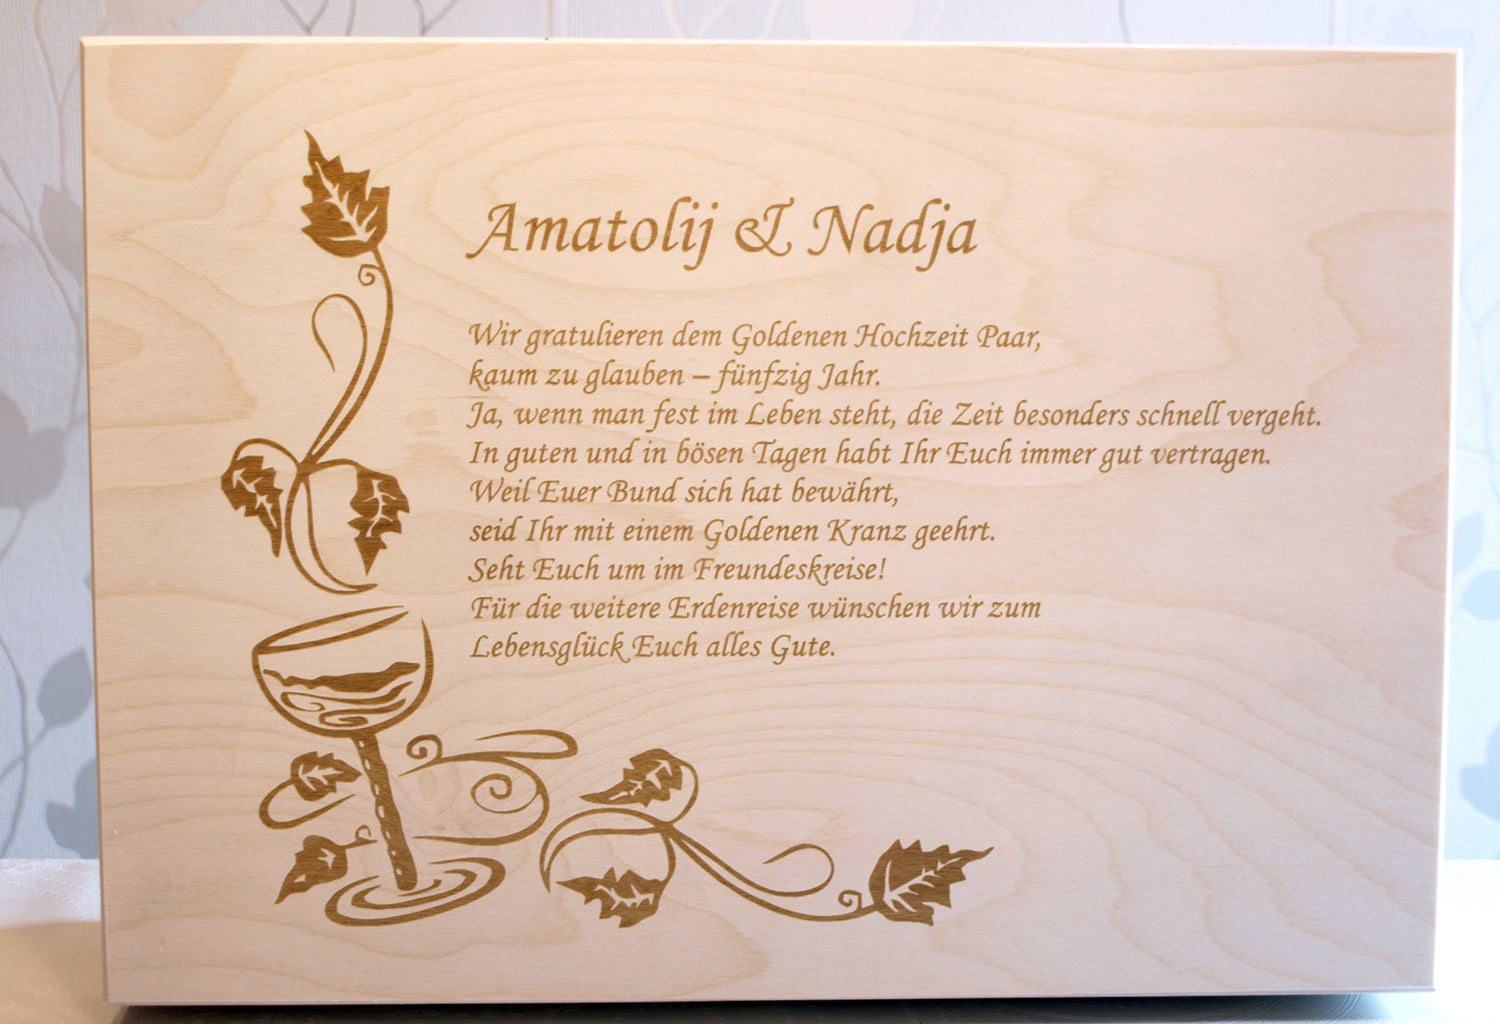 Amatolij & Nadja
Wir gratulieren dem Goldenen Hochzeit Paar,
kaum zu glauben – fünfzig Jahr.
Ja, wenn man fest im Leben steht, die Zeit besonders schnell vergeht.
In guten und in bösen Tagen habt Ihr Euch immer gut vertragen.
Weil Euer Bund sich hat bewährt,
seid Ihr mit einem Goldenen Kranz geehrt.
Seht Euch um im Freundeskreise!
Für die weitere Erdenreise wünschen wir zum
Lebensglück Euch alles Gute.